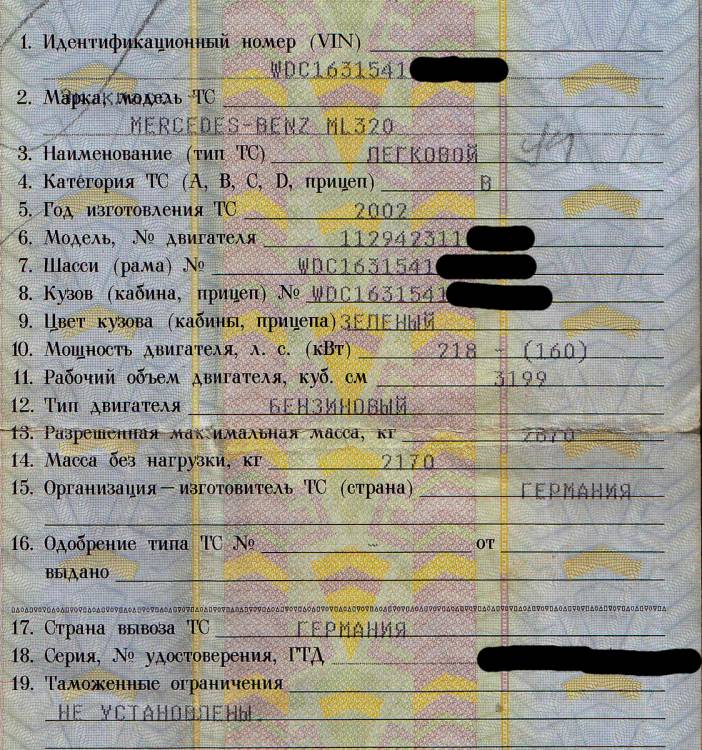 1. Идентификационный номер (VIN)
WDC1631541
2. Марка, модель ТС
MERCEDES-BENZ ML320
3. Наименование (тип ТС) ЛЕГКОВОЙ
4. Категория ТС (А, В, С, D, прицеп) В
5. Год изготовления ТС 2002
6. Модель, № двигателя 112942311
7. Шасси (рама) № WDC1631541
8. Кузов (кабина, прицеп) № WDC1631541
9. Цвет кузова (кабины, прицепа) ЗЕЛЕНЫЙ
10. Мощность двигателя, л. с. (кВт) 218 - (160)
11. Рабочий объем двигателя, куб. см 3199
12. Тип двигателя БЕНЗИНОВЫЙ
13. Разрешенная максимальная масса, кг 2870
14. Масса без нагрузки, кг 2170
15. Организация—изготовитель ТС (страна) ГЕРМАНИЯ
16. Одобрение типа ТС № - от
выдано
17. Страна вывоза ТС ГЕРМАНИЯ
18. Серия, № удостоверения, ГТД
19. Таможенные ограничения
НЕ УСТАНОВЛЕНЫ.